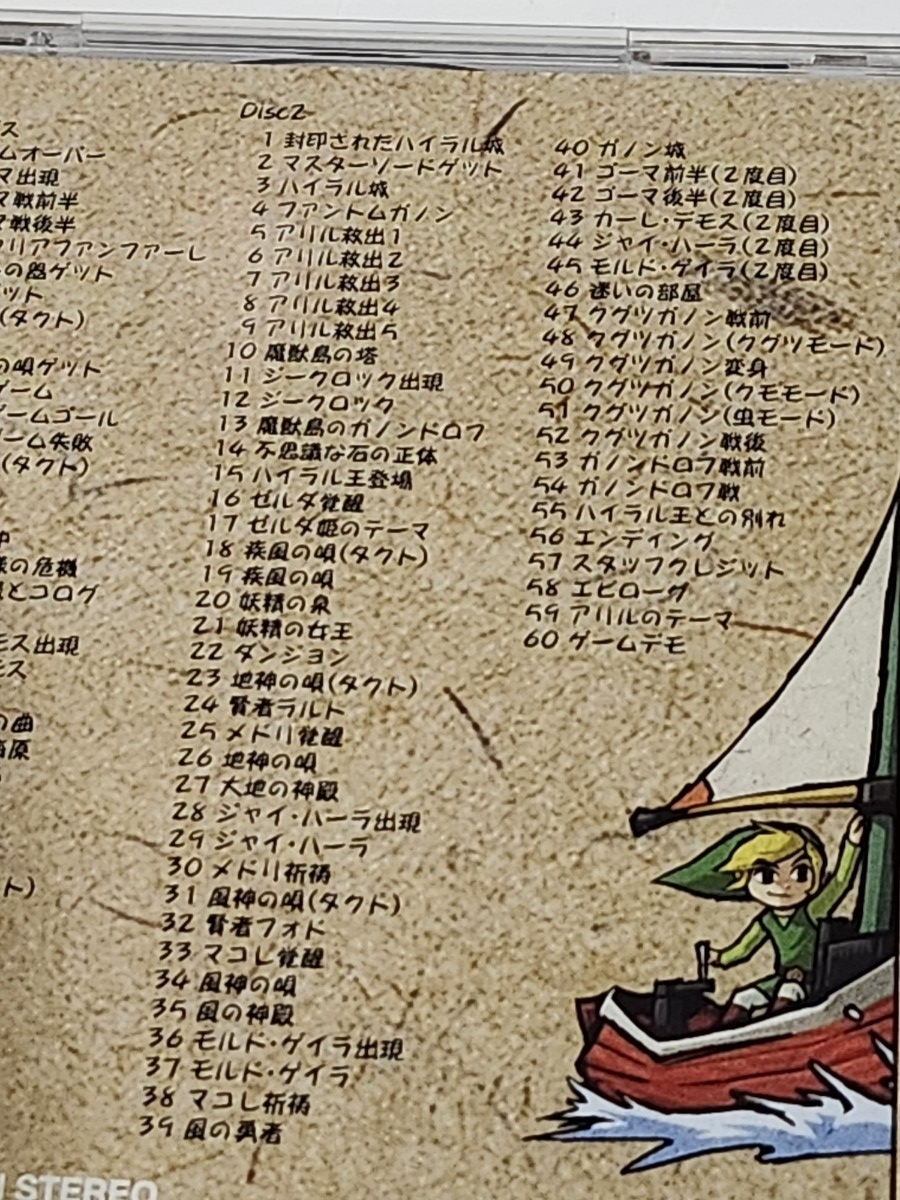 ス
ムオーバー
マ出現
マ戦前半
マ戦後半
クリアファンファーレ
の器ゲット
ット
(タクト)
の唄ゲット
ゲーム
ゲームゴール
ーム失敗
(タクト)
中
様の危機
とコログ
モス出現
モス
の曲
海原
ト)
Disc2
1 封印されたハイラル城
2 マスターソードゲット
3 ハイラル城
4 ファントムガノン
5 アリル救出1
6 アリル救出2
7 アリル救出3
8 アリル救出4
9 アリル救出5
10 魔獣島の塔
11 ジークロック出現
12 ジークロック
13 魔獣島のガノンドロフ
14 不思議な石の正体
15 ハイラル王登場
16 ゼルダ覚醒
17 ゼルダ姫のテーマ
18 疾風の唄(タクト)
19 疾風の唄
20 妖精の泉
21 妖精の女王
22 ダンジョン
23 地神の唄(タクト)
24 賢者ラルト
25 メドリ覚醒
26 地神の唄
27 大地の神殿
28 ジャイ・ハーラ出現
29 ジャイ・ハーラ
30 メドリ祈祷
31 風神の唄(タクト)
32 賢者フォド
33 マコレ覚醒
34 風神の唄
35 風の神殿
36 モルド・ゲイラ出現
37 モルド・ゲイラ
38 マコレ祈祷
39 風の勇者
40 ガノン城
41 ゴーマ前半(2度目)
42 ゴーマ後半(2度目)
43 カーレ・デモス(2度目)
44 ジャイ・ハーラ(2度目)
45 モルド・ゲイラ(2度目)
46 迷いの部屋
47 クグツガノン戦前
48 クグツガノン(クグツモード)
49 クグツガノン変身
50 クグツガノン(クモモード)
51 クグツガノン(虫モード)
52 クグツガノン戦後
53 ガノンドロフ戦前
54 ガノンドロフ戦
55 ハイラル王との別れ
56 エンディング
57 スタッフクレジット
58 エピローグ
59 アリルのテーマ
60 ゲームデモ
STEREO